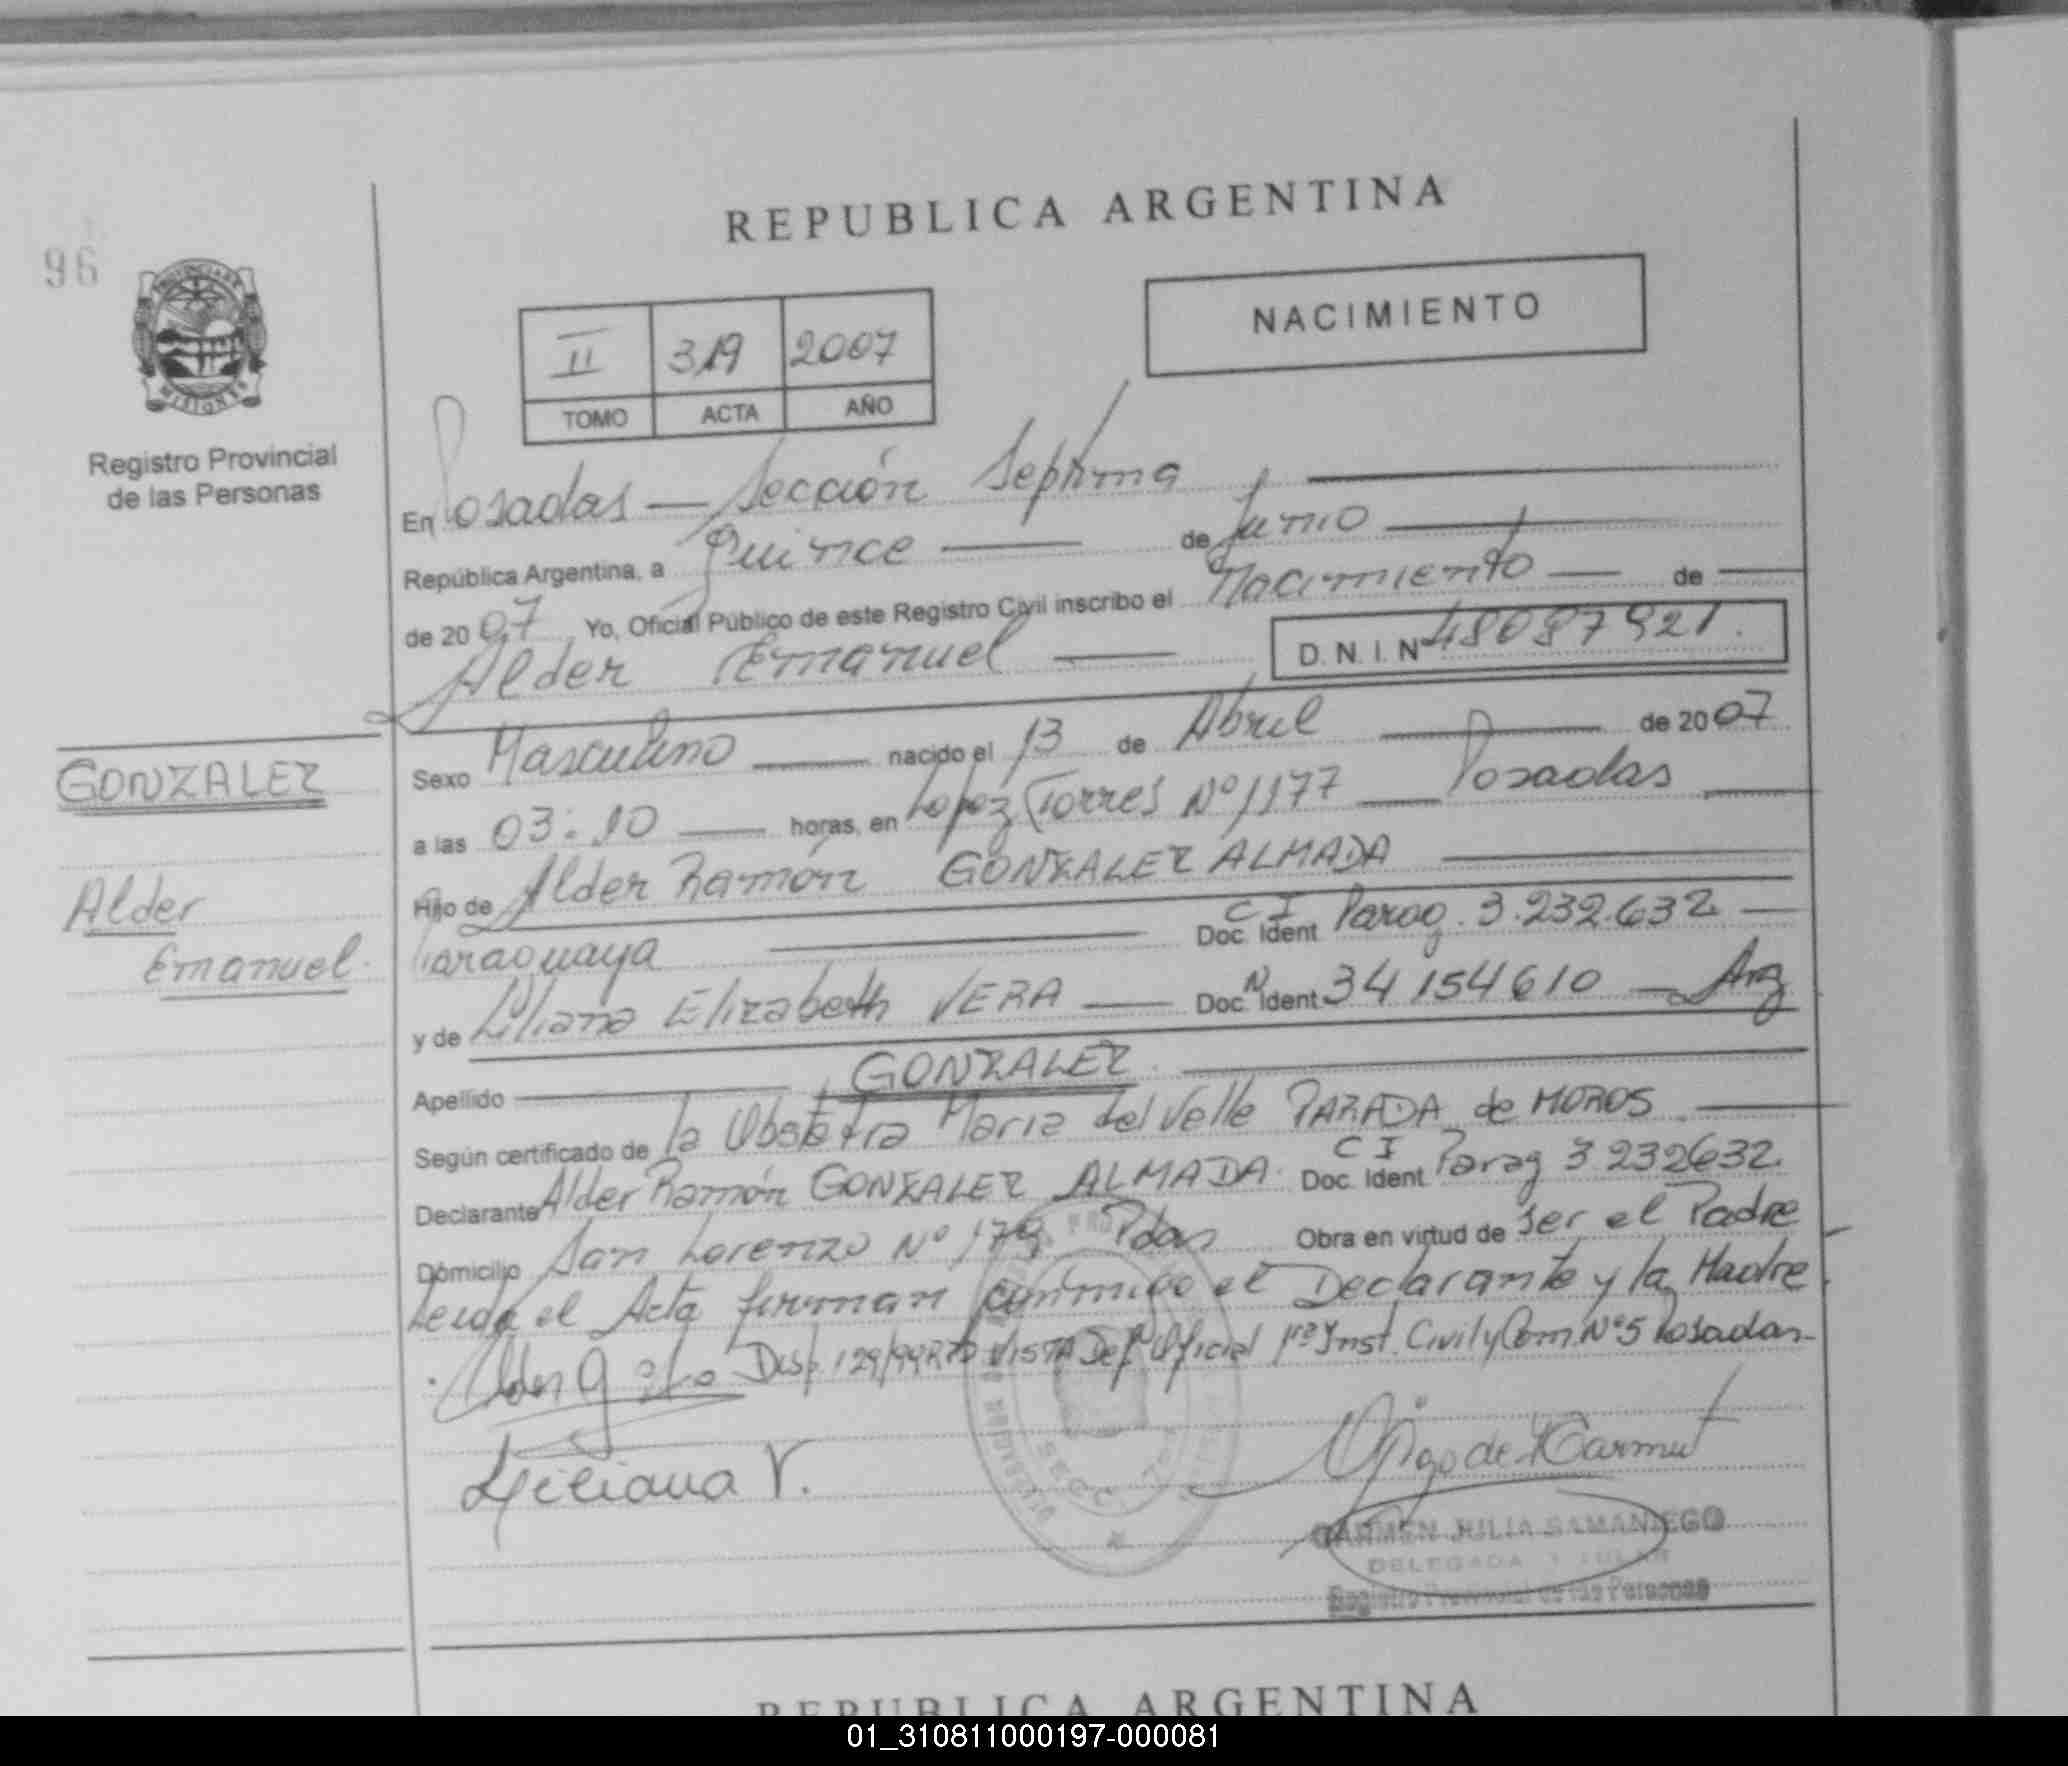 96
REPUBLICA ARGENTINA
NACIMIENTO
II 319 2007
TOMO ACTA AÑO
Registro Provincial
de las Personas
En Posadas — Sección Septima
República Argentina, a Quince de Junio
de 2007 Yo, Oficial Público de este Registro Civil inscribo el Nacimiento de
Alder Emanuel D.N.I. Nº 48087921.
Sexo Masculino nacido el 13 de Abril de 2007
a las 03:10 horas, en Lopez Torres Nº 1177 Posadas
Hijo de Alder Ramón GONZALEZ ALMADA
Paraguaya Doc. Ident CI Parag. 3.232.632
y de Liliana Elizabeth VERA Doc. Ident N 34154610 — Arg
Apellido GONZALEZ
Según certificado de la Obstetra Maria del Valle PARADA de MOROS
Declarante Alder Ramón GONZALEZ ALMADA Doc. Ident CI Parag 3232632.
Domicilio San Lorenzo Nº 179 Pdas Obra en virtud de ser el Padre
Leida el Acta firman conmigo el Declarante y la Madre.
Disp. 129/99 VISTA Def. Oficial 1ra Inst. Civil y Com. Nº 5 Posadas
Liliana V.
CARMEN JULIA SAMANIEGO
DELEGADA
Registro Provincial de las Personas
GONZALEZ
Alder
Emanuel.
REPUBLICA ARGENTINA
01_310811000197-000081